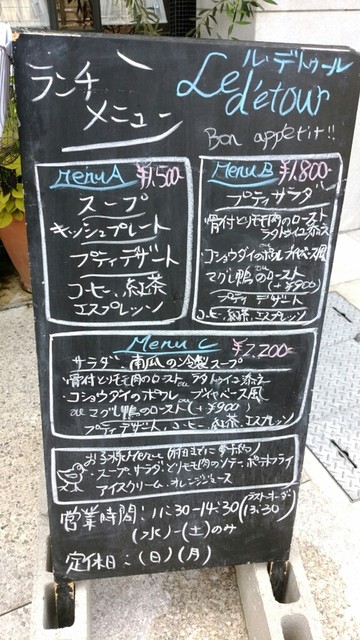 ランチ
メニュー
ル・デトゥール
Le détour
Bon appétit!!
Menu A ¥1,500-
スープ
キッシュプレート
プティデザート
コーヒー、紅茶
エスプレッソ
Menu B ¥1,800-
プティサラダ
骨付とりモモ肉のロースト
ラタトゥイユ添え
・コショウダイのポワレ ブイヤベース風
マグレ鴨のロースト
(+¥900)
プティデザート
コーヒー、紅茶、エスプレッソ
Menu C ¥2,200-
サラダ、南瓜の冷製スープ
・骨付とりモモ肉のロースト ou ラタトゥイユ添え
・コショウダイのポワレ ブイヤベース風
ou マグレ鴨のロースト (+¥900)
プティデザート、コーヒー、紅茶、エスプレッソ
お子様
・スープ、サラダ、とりモモ肉のソテー、ポテトフライ
アイスクリーム・オレンジジュース
営業時間:11:30-14:30(ラストオーダー 13:30)
(水)-(土)のみ
定休日:(日)(月)